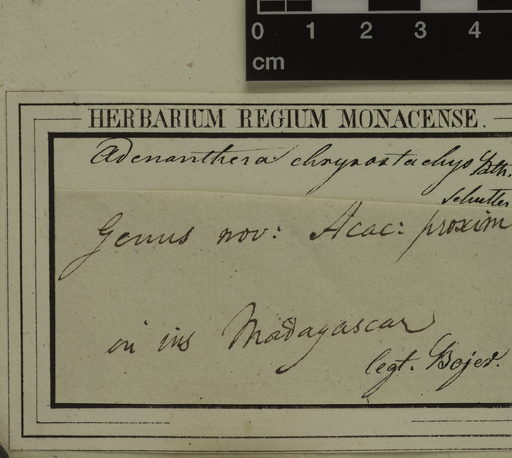 0 1 2 3 4
cm
HERBARIUM REGIUM MONACENSE.
Adenanthera chrysostachys Bth.
Genus nov: Acac: proxim
in ins Madagascar
legt. Bojer.